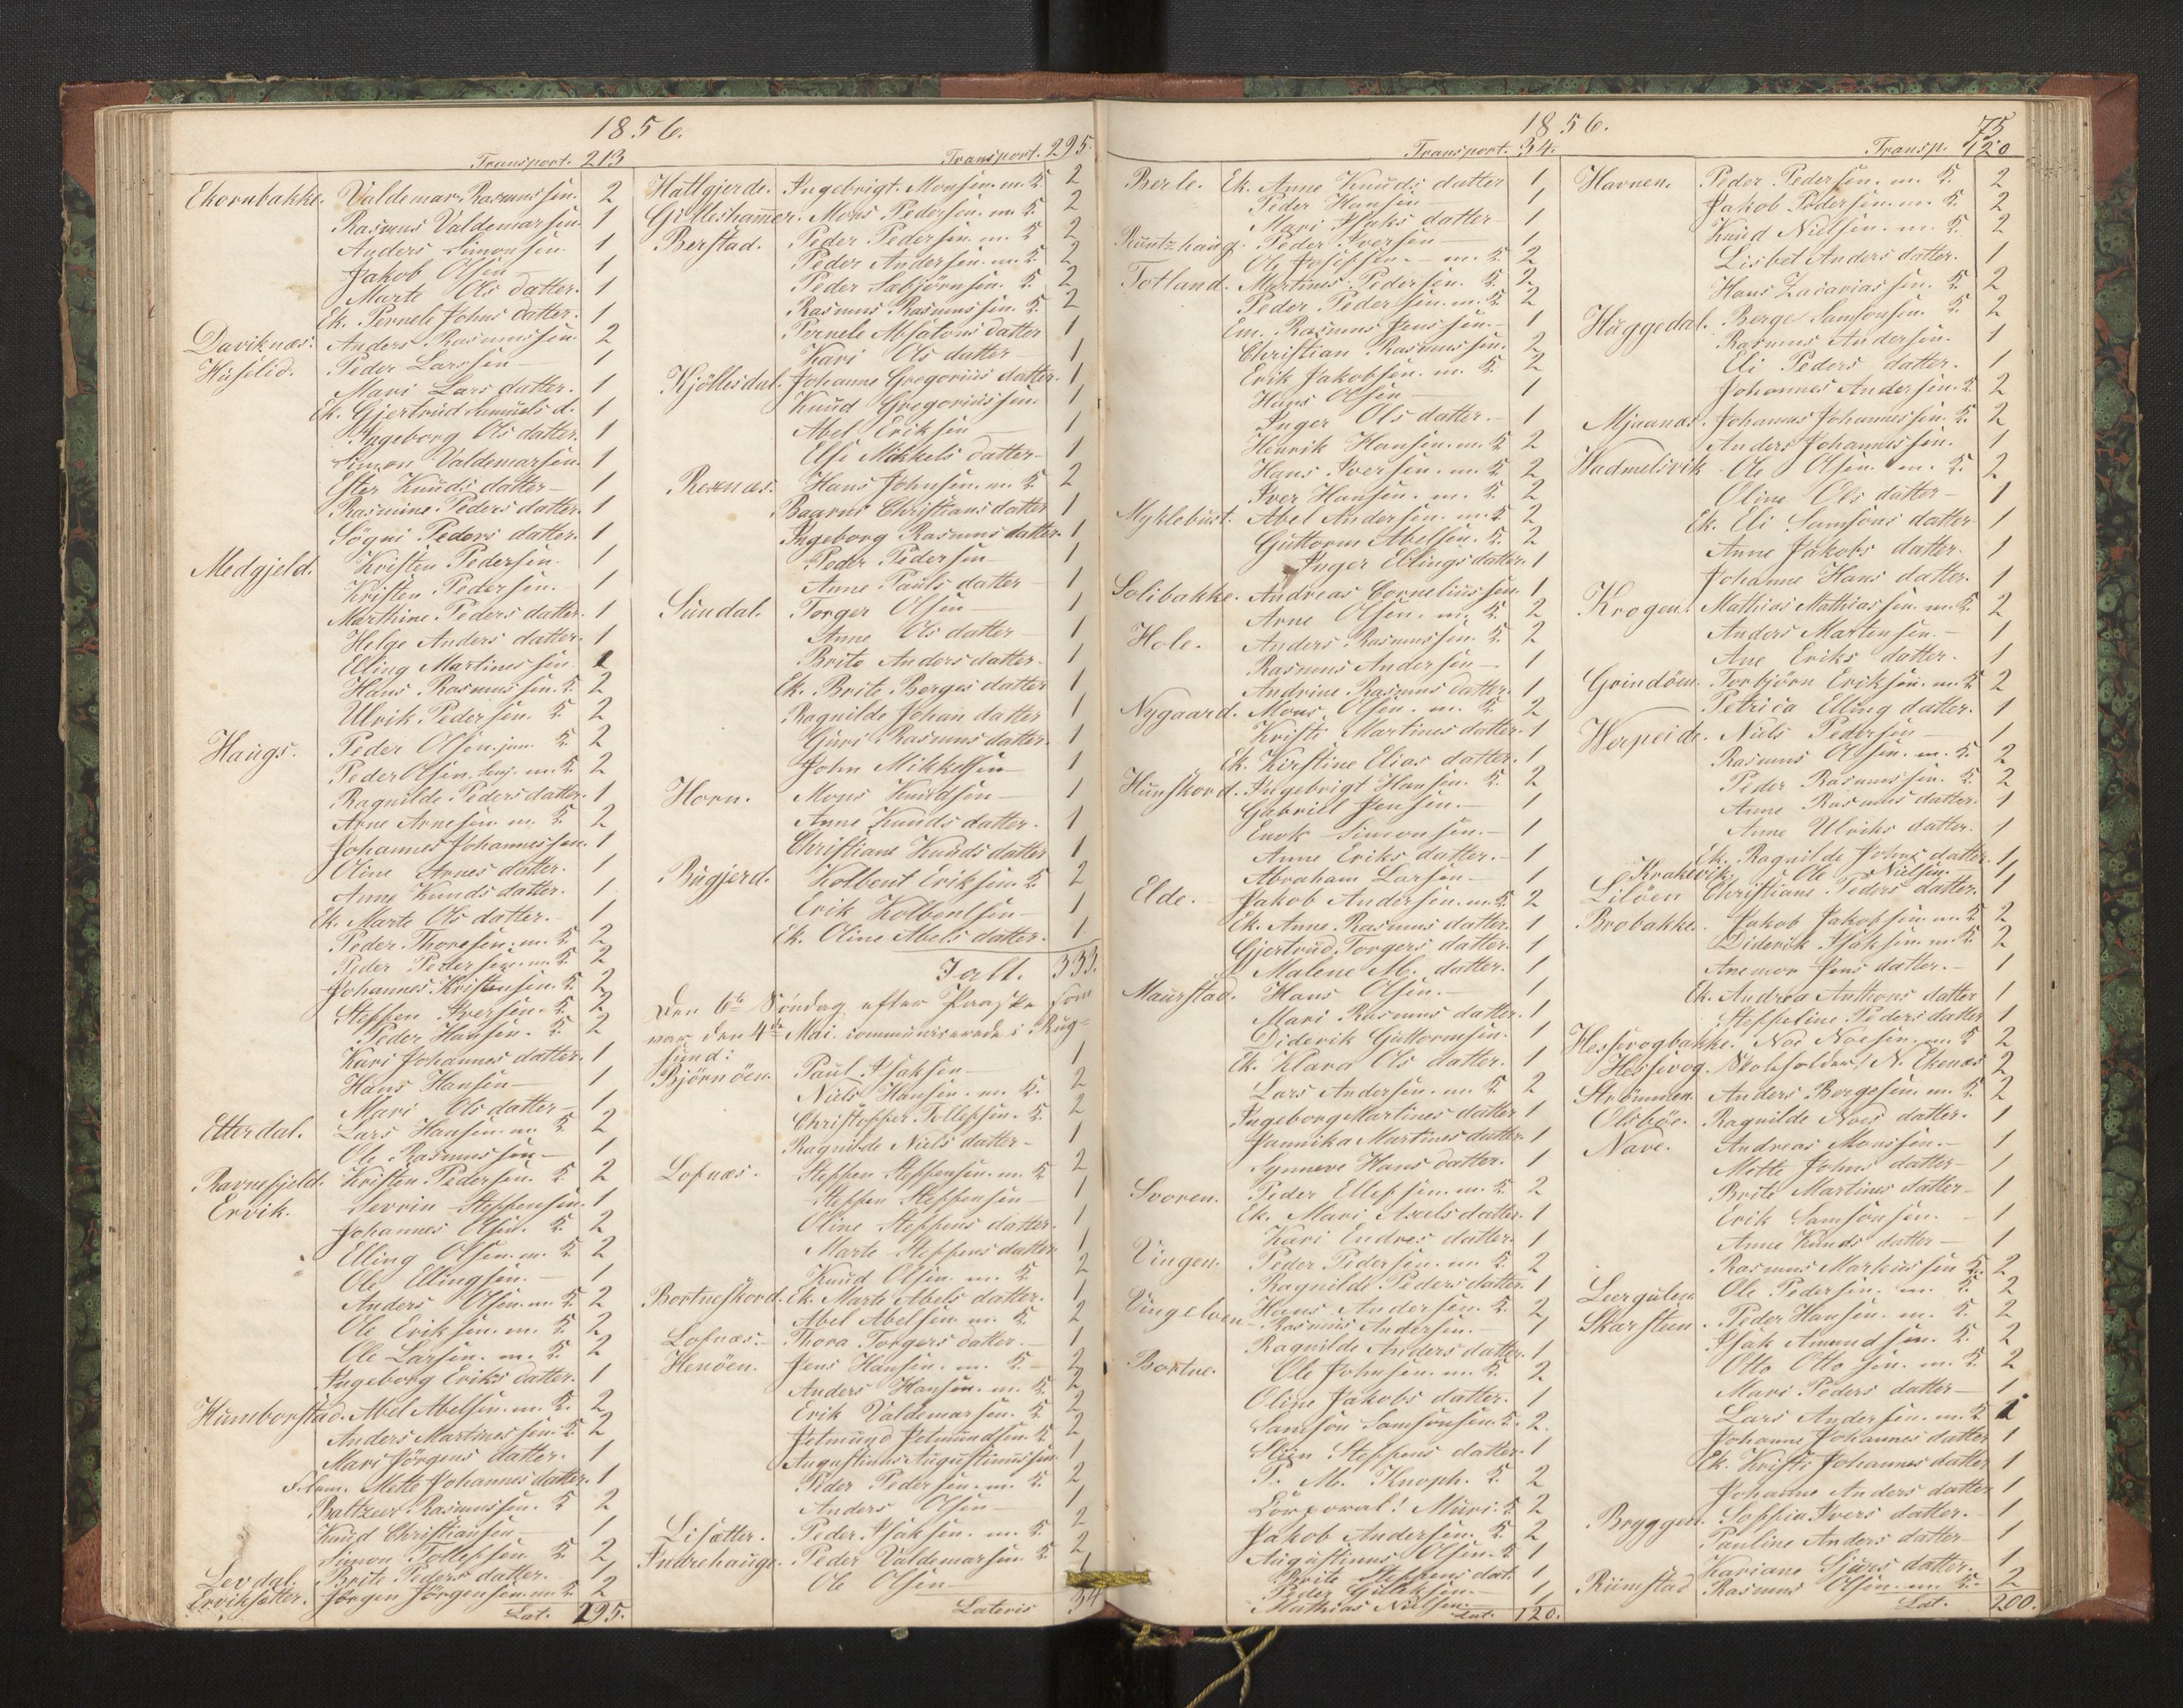 1856.
Transport. 213
Ekornbakke. Valdemar Rasmussen. 2
Rasmus Valdemarsen 1
Anders Simonsen. 1
Jakob Olsen 1
Marte Ols datter. 1
Ek. Pernele Johns datter. 1
Daviknæs. Anders Rasmussen 2
Huselid. Peder Larssen 1
Mari Lars datter. 1
Ek. Gjertrud Samuels d. 1
Ingeborg Ols datter. 1
Simon Valdemarsen. 1
Ester Knuds datter 1
Rasmine Peders datter. 1
Sögni Peders datter. 1
Medgjeld. Kristen Pedersen 1
Kristen Pedersen. 1
Marthine Peders datter. 1
Helge Anders datter. 1
Elling Martinessen
Hans Rasmussen. K. 2
Ulrik Pedersen. K. 2
Haugs. Peder Olsen. jun. K. 2
Peder Olsen. Senj. m. K. 2
Ragnilde Peders datter. 1
Arne Arnesen m. K. 2
Johannes Johannessen. 1
Oline Arnes datter. 1
Anne Knuds datter. 1
Ek. Marte Ols datter. 1
Peder Thoresen. m. K. 2
Peder Pedersen. m. K. 2
Johannes Kristensen. K. 2
Steffen Iversen. K. 2
Peder Hansen. K. 2
Kari Johannes datter. 1
Hans Hansen 1
Mari Ols datter 1
Etterdal. Lars Hansen. m. K. 2
Ole Rasmussen 1
Ravnefjeld. Kristen Pedersen. K. 2
Ervik. Sevrin Steffensen. 1
Johannes Olsen. K. 2
Elling Olsen. m. K. 2
Ole Ellingsen. 1
Anders Olsen. m. K. 2
Ole Eriksen. m. K. 2
Ole Larsen. m. K. 2
Ingeborg Eriks datter. 1
Humborstad. Abel Abelsen. m. K. 2
Anders Martinessen. K. 2
Mari Jörgens datter. 1
Mette Johannes datter. 1
Baltzer Rasmussen. K. 2
Knud Christiansen 1
Simon Tollefsen K. 2
Levdal. Brite Peders datter. 1
Erviksætter. Jörgen Jörgensen. m. K. 2
Lat. 295.
Transport. 295.
Hatlgjerde. Ingebrigt Monsen. m. K. 2
Gilleshammer. Mons Pedersen. m. K. 2
Berstad. Peder Pedersen. m. K. 2
Peder Andersen. m. K. 2
Peder Sæbjörnsen. K. 2
Rasmus Rasmussen. K. 2
Pernele Absalons datter 1
Kari Ols datter 1
Kjöllesdal. Johanne Gregorius datter. 1
Knud Gregoriussen. 1
Abel Eriksen 1
Else Mikkels datter 1
Rexnæs. Hans Johnsen. m. K. 2
Baarni Christians datter 1
Ingeborg Rasmus datter. 1
Peder Pedersen 1
Anne Pauls datter 1
Sundal. Torger Olsen 1
Anne Ols datter 1
Brite Anders datter. 1
Ek. Brite Borges datter 1
Ragnilde Johan datter 1
Guri Rasmus datter. 1
John Mikkelsen 1
Horn. Mons Knudsen 1
Anne Knuds datter. 1
Christiane Knuds datter 1
Bugjerd. Kolbent Eriksen. K. 2
Erik Kolbentsen 1
Ek. Oline Abels datter. 1
I alt. 333.
Den 6te Söndag efter Paaske som
var den 4de Mai. communicerede i Rug-
sund:
Björnöen. Paul Isaksen 1
Niels Hansen. m. K. 2
Christoffer Tollefsen. K. 2
Ragnilde Niels datter 1
Lofnæs. Steffen Steffensen. m. K. 2
Steffen Steffensen 1
Oline Steffens datter. 1
Marte Steffens datter 1
Knud Olsen. m. K. 2
Bortneskord. Ek. Marte Abels datter. 1
Abel Abelsen. m. K. 2
Lofnæs. Thora Torgers datter. 1
Henöen. Jens Hansen. m. K. 2
Anders Hansen. m. K. 2
Erik Valdemarsen. K. 2
Jetmund Jetmundsen. K. 2
Augustinus Augustinussen 1
Peder Pedersen. m. K. 2
Anders Olsen 1
Lisætter. Peder Isaksen. m. K. 2
Indrehauge. Peder Valdemarsen. K. 2
Ole Olsen 1
Lateris 34
1856.
75
Transport. 34.
Berle. Ek. Anne Knuds datter 1
Peder Hansen 1
Mari Isaks datter 1
Runtzhaug. Peder Iversen 1
Ole Josefsen. m. K. 2
Totland. Martinus Pedersen. K. 2
Peder Pedersen. m. K. 2
Em. Rasmus Jenssen. 1
Christian Rasmussen. 2
Erik Jakobsen. m. K. 2
Hans Olsen 1
Inger Ols datter. 1
Henrik Hansen. m. K. 2
Hans Iversen. m. K. 2
Iver Hansen. m. K. 2
Myklebust. Abel Andersen. m. K. 2
Guttorm Abelsen. K. 2
Inger Ellings datter. 1
Solibakke. Andreas Corneliussen. 1
Arne Olsen. m. K. 2
Hole. Anders Rasmussen. K. 2
Rasmus Andersen 1
Andrine Rasmus datter. 1
Nygaard. Mons Olsen. m. K. 2
Kristi Martines datter. 1
Ek. Kirstine Elias datter. 1
Hunskord. Ingebrigt Hansen. K. 2
Gabriel Jensen. 1
Enok Simonsen. 1
Anne Eriks datter. 1
Abraham Larsen 1
Elde. Jakob Andersen. m. K. 2
Ek. Anne Rasmus datter. 1
Gjertrud Torgers datter. 1
Malene M. datter. 1
Maurstad. Hans Olsen. 1
Mari Rasmus datter. 1
Diderik Guttormsen. 1
Ek. Klara Ols datter. 1
Lars Andersen. m. K. 2
Ingeborg Martines datter 1
Jannika Martines datter. 1
Synneve Hans datter. 1
Svoren. Peder Ellefsen. m. K. 2
Ek. Mari Axels datter. 1
Kari Endres datter. 1
Vingen. Peder Pedersen. m. K. 2
Ragnilde Peders datter. 1
Vingelven Hans Andersen. K. 2
Rasmus Andersen. 1
Ragnilde Anders datter. 1
Bortne. Ole Johnsen. m. K. 2
Oline Jakobs datter. 1
Samson Samsonsen. K. 2.
Steffens datter. 1
M. Knoph. K. 2
Corporal! Muri. K. 2
Jakob Andersen. K. 2
Augustinus Olsen. K 1
Brite Steffens dat. 1
Peder 1
Mathias Nielsen. 1
Lat. 120.
Transp. 120
Havnen. Peder Pedersen. m. K. 2
Jakob Pedersen. m. K. 2
Knud Nielsen. m. K. 2
Lisbet Anders datter. 1
Hans Zacariassen. K. 2
Huggedal. Berge Samsonsen. K. 2
Rasmus Andersen. 1
Eli Peders datter. 1
Johannes Andersen. K. 2
Mjaanæs. Johannes Johannessen. K. 2
Anders Johannessen. 1
Vadmelsvik Ole Olsen. m. K. 2
Oline Ols datter 1
Ek. Eli Samsons datter 1
Anne Jakobs datter. 1
Johanne Hans datter. 1
Krogen. Mathias Mathiassen. m. K. 2
Anders Martensen. 1
Ane Eriks datter. 1
Grindöen. Torbjörn Eriksen. m. K. 2
Petrica Elling datter. 1
Verpeide. Niels Pedersen 1
Rasmus Olsen. m. K. 2
Peder Rasmussen. K. 2
Anne Rasmus datter. 1
Anne Ulriks datter. 1
Ek. Ragnilde Johns datter. 1
Krakevik. Ole Nielsen. 1
Lilöen Christiane Peders datter. 1
Brobakke. Jakob Jakobsen. m. K. 2
Diderik Isaksen. m. K. 2
Anemor Jens datter. 1
Ek. Andrea Anthons datter 1
Steffeline Peders datter 1
Hessevogbakke. Noe Noesen. m. K. 2
Hessevog. N. Ekenæs 2
Strömmen. Anders Bergesen. m. K. 2
Olsböe. Ragnilde Noes datter. 1
Nave. Andreas Monssen. 1
Mette Johns datter 1
Brite Martines datter 1
Erik Samsonsen. 1
Anne Knuds datter 1
Rasmus Markussen K. 2
Levgulen Ole Pedersen. m. K. 2
Skarsteen. Peder Hansen. m. K. 2
Isak Amundsen. K. 2
Otto Ottosen. m. K. 2
Mari Peders datter 1
Lars Andersen. m. K.
Johanne Johannes datter 1
Ek. Kristi Johannes datter 1
Johanne Anders datter 1
Bryggen. Soffia Ivers datter. 1
Pauline Anders datter 1
Kariane Sjurs datter. 1
Rimstad Rasmus Olsen. m. K. 2
Lat. 200.